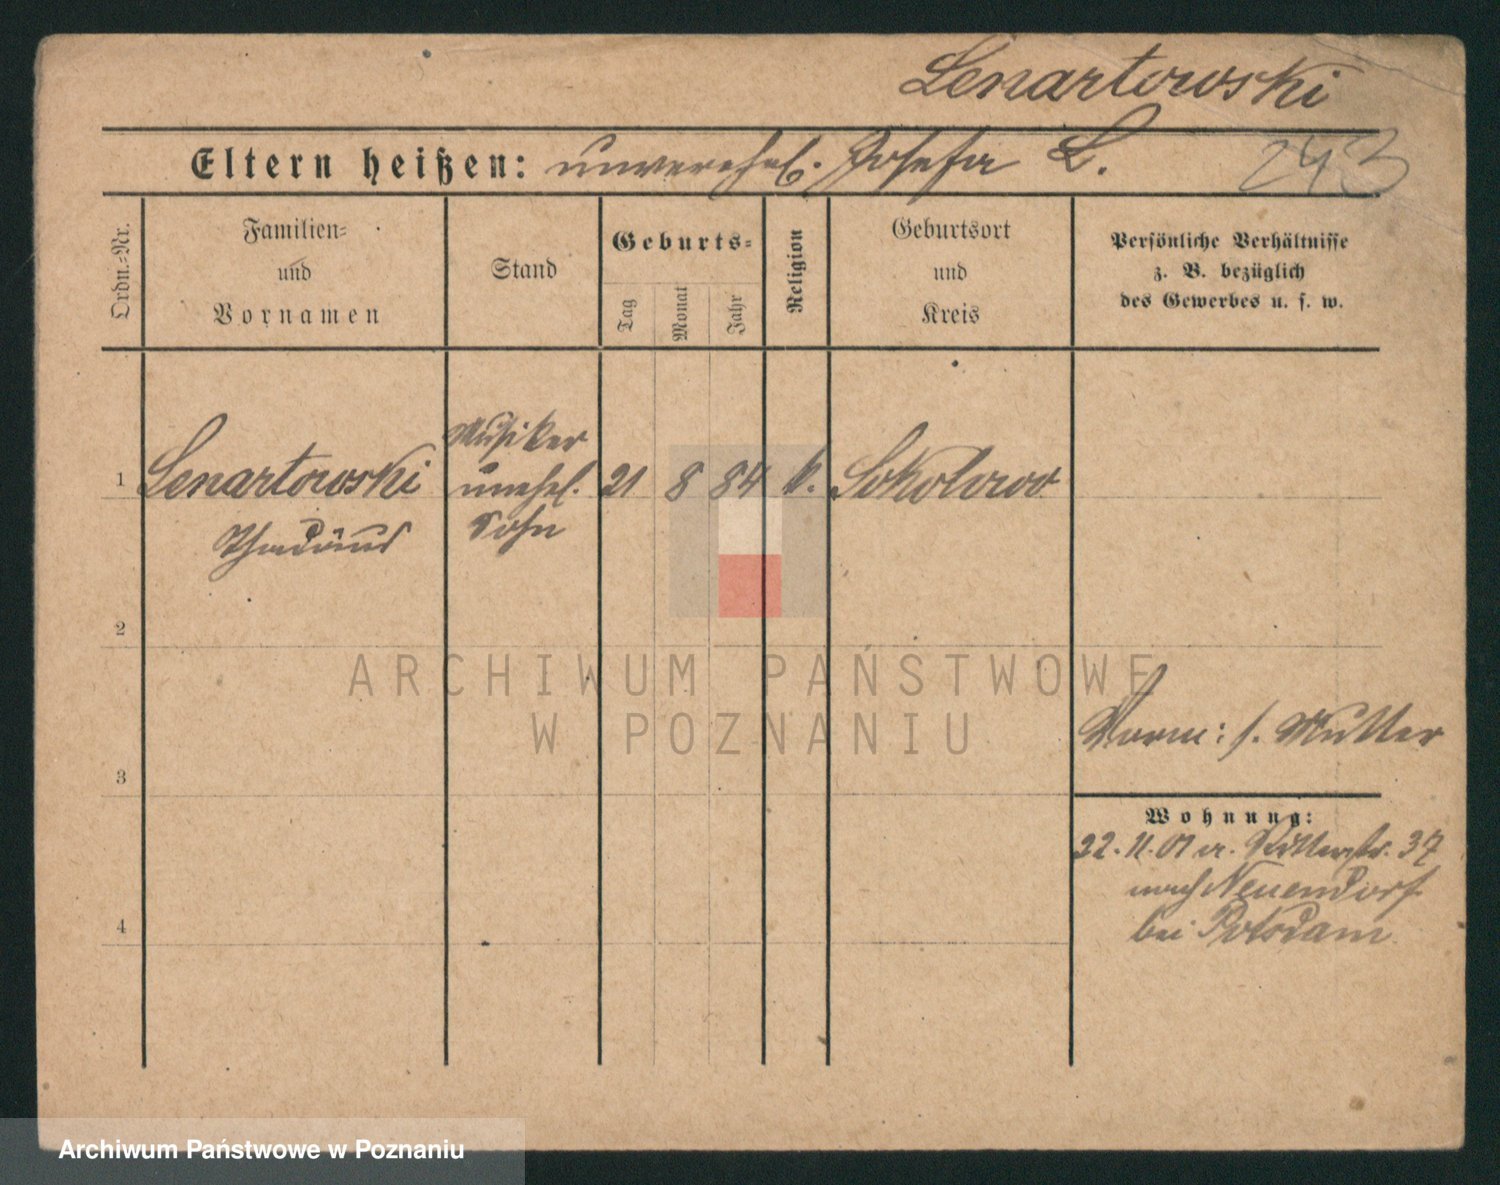 Lenartowski
Eltern heißen: unverehel. Josefa L.
243
Ordn.-Nr.
Familien-
und
Vornamen
Stand
Geburts-
Tag
Monat
Jahr
Religion
Geburtsort
und
Kreis
Persönliche Verhältnisse
z. B. bezüglich
des Gewerbes u. s. w.
Musiker
1 Lenartowski unehel. 21 8 84 k. Sokolowo
Thadäus Sohn
2
ARCHIWUM PAŃSTWOWE
W POZNANIU
Vorm: s. Mutter
3
Wohnung:
22.11.01 Ritterstr. 37
nach Neuendorf
bei Potsdam
4
Archiwum Państwowe w Poznaniu